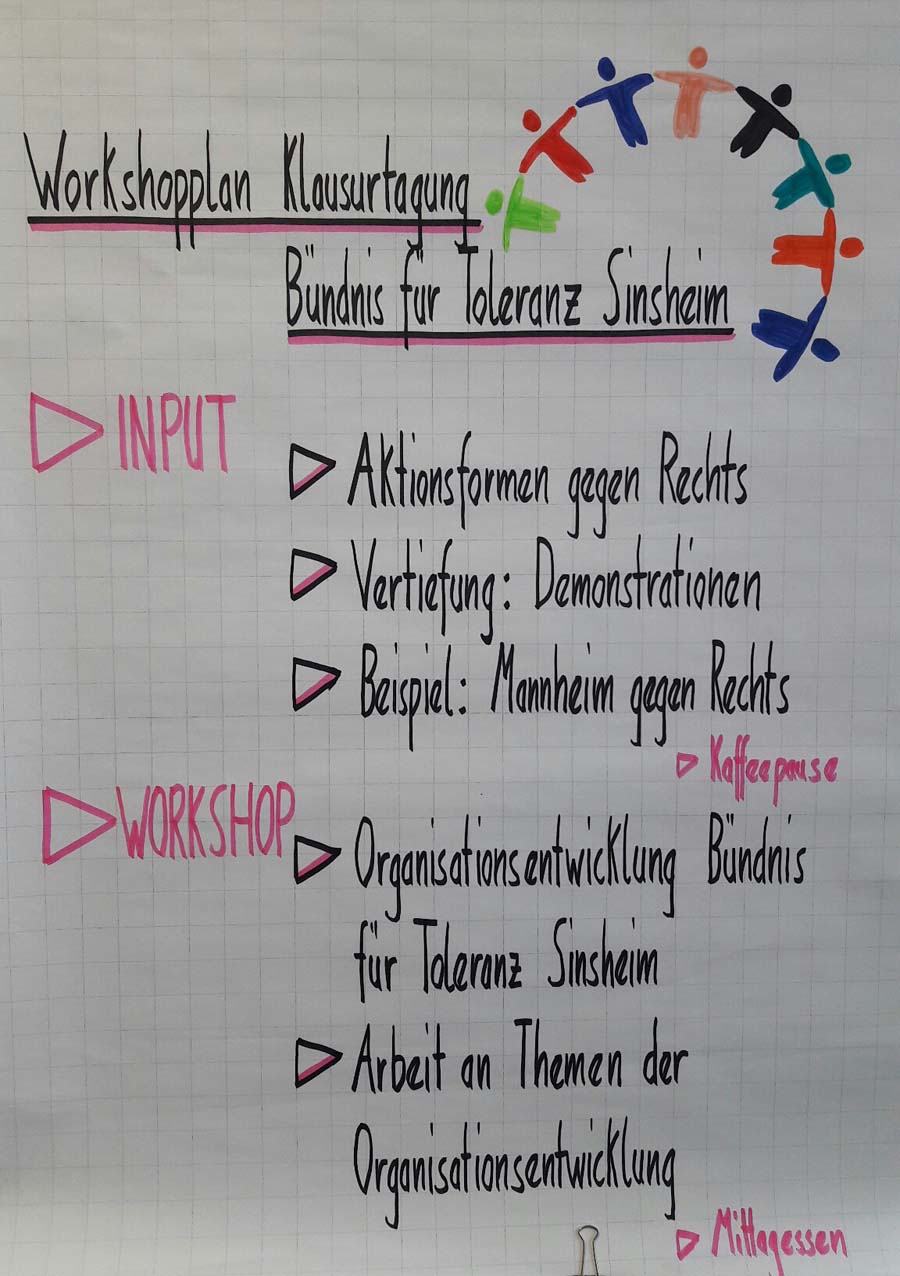 Workshopplan Klausurtagung
Bündnis für Toleranz Sinsheim
INPUT
Aktionsformen gegen Rechts
Vertiefung: Demonstrationen
Beispiel: Mannheim gegen Rechts
Kaffeepause
WORKSHOP
Organisationsentwicklung Bündnis
für Toleranz Sinsheim
Arbeit an Themen der
Organisationsentwicklung
Mittagessen